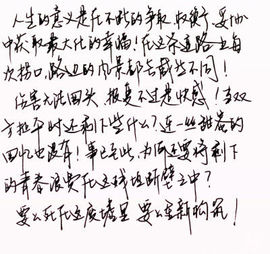 人生的意义是在不断的争取、权衡、妥协
中获取最大化的幸福!在这条道路上每
次拐口,路边的风景都会截然不同!
伤害无法回头 报复不过是快感!当双
方扯平时还剩下些什么?连一丝甜蜜的
回忆也没有!事已至此,为何还要将剩下
的青春浪费在这残垣断壁之中?
要么死在这废墟里 要么重新构筑!